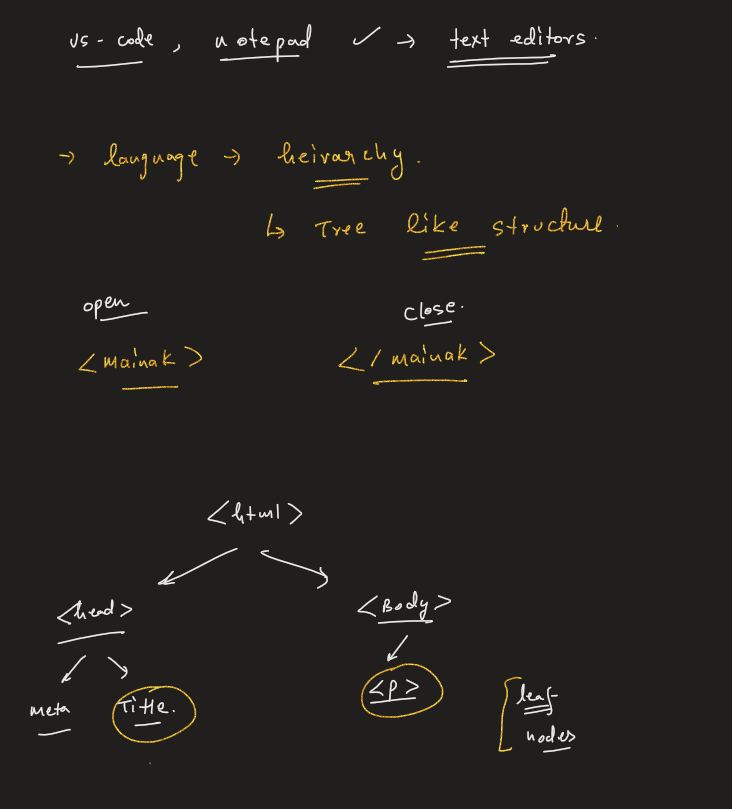 vs-code, notepad ✓ → text editors.
→ language → heirarchy.
↳ Tree like structure.
open close.
<mainak> </mainak>
<html>
<head> <Body>
meta Title. <p> leaf
nodes